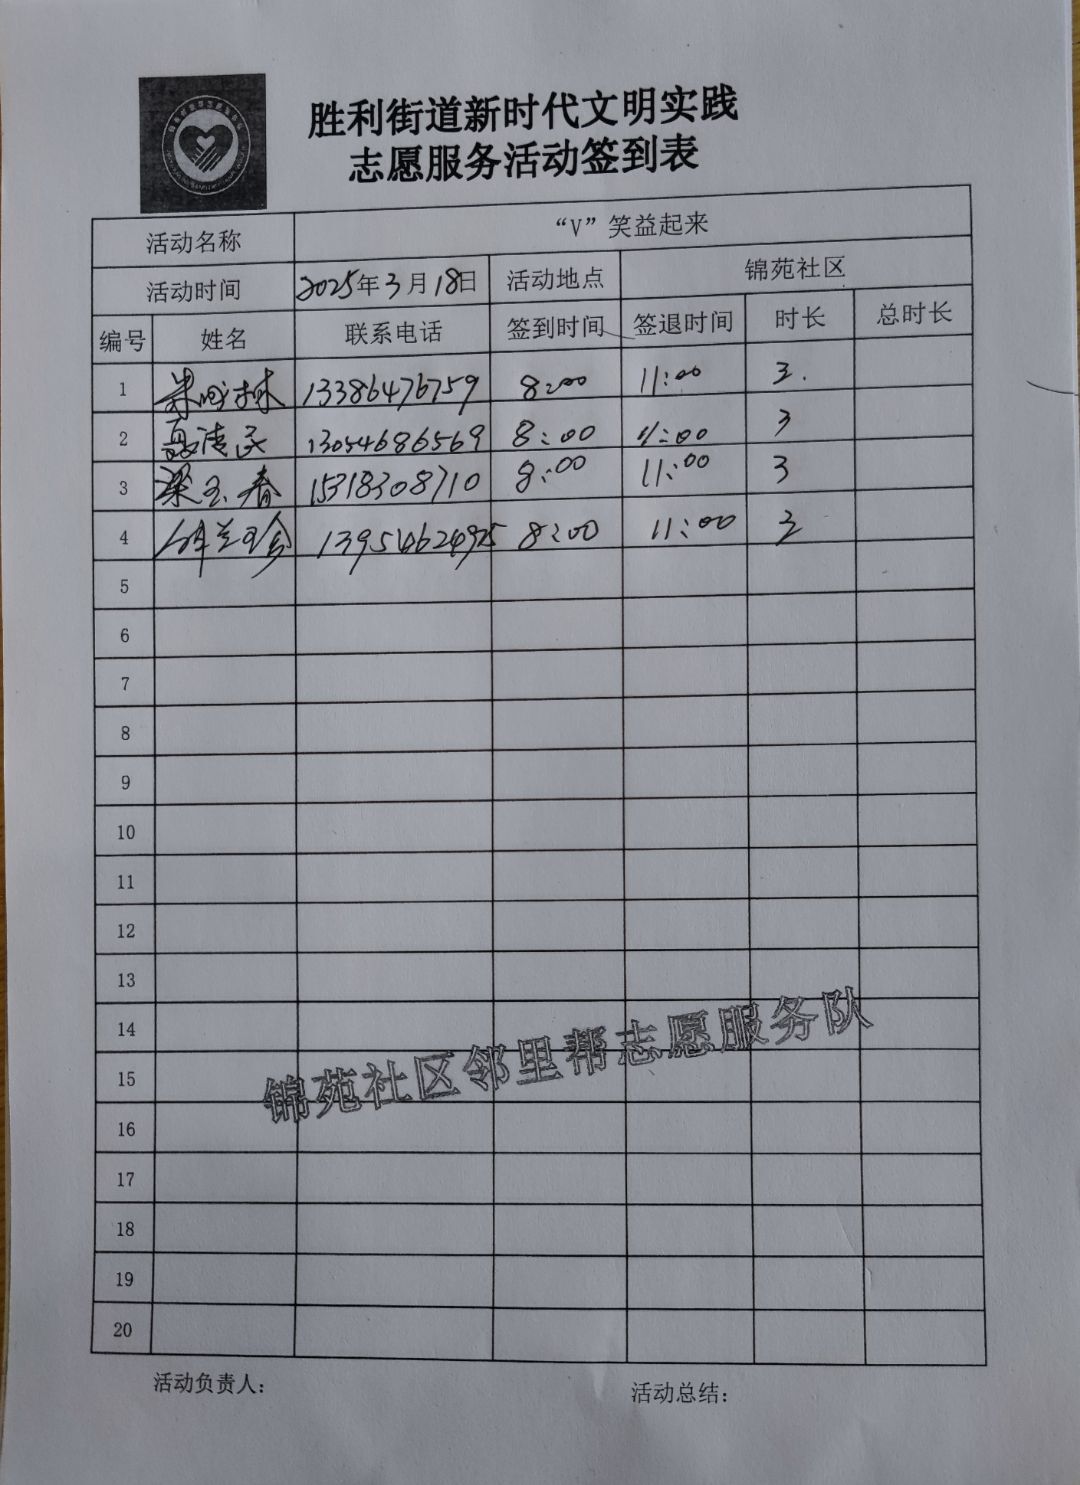 胜利街道新时代文明实践
志愿服务活动签到表
活动名称 “V”笑益起来
活动时间 2025年3月18日 活动地点 锦苑社区
编号 姓名 联系电话 签到时间 签退时间 时长 总时长
1 13386476759 8:00 11:00 3.
2 13054686569 8:00 11:00 3
3 梁玉春 15318308710 8:00 11:00 3
4 13954624925 8:00 11:00 3
5
6
7
8
9
10
11
12
13
14
15
16
17
18
19
20
锦苑社区邻里帮志愿服务队
活动负责人:
活动总结: